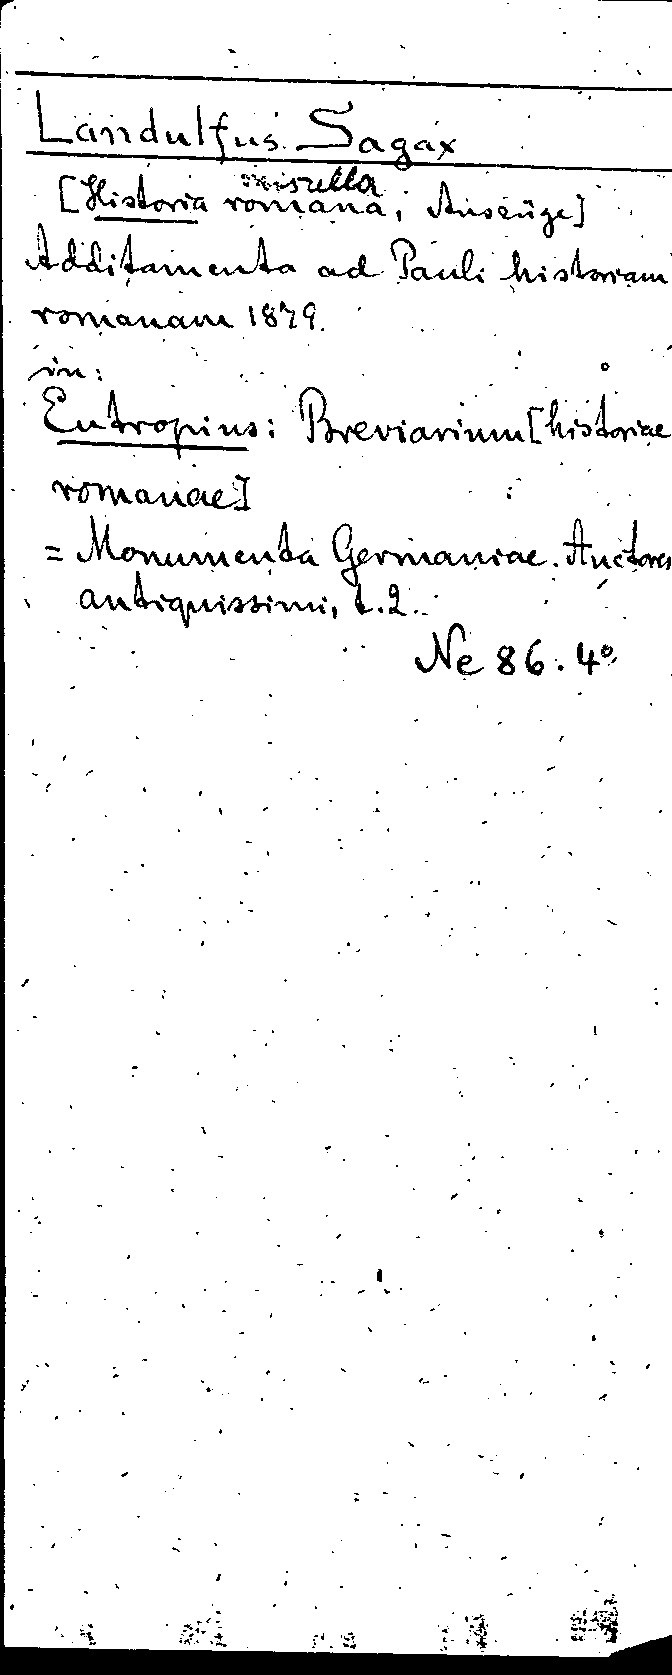 Landulfus Sagax
miscella
[Historia romana, Auszüge]
Additamenta ad Pauli historiam
romanam 1879.
in:
Eutropius: Breviarium [historiae
romanae]
= Monumenta Germaniae. Auctores
antiquissimi, t. 2.
Ne 86. 4º